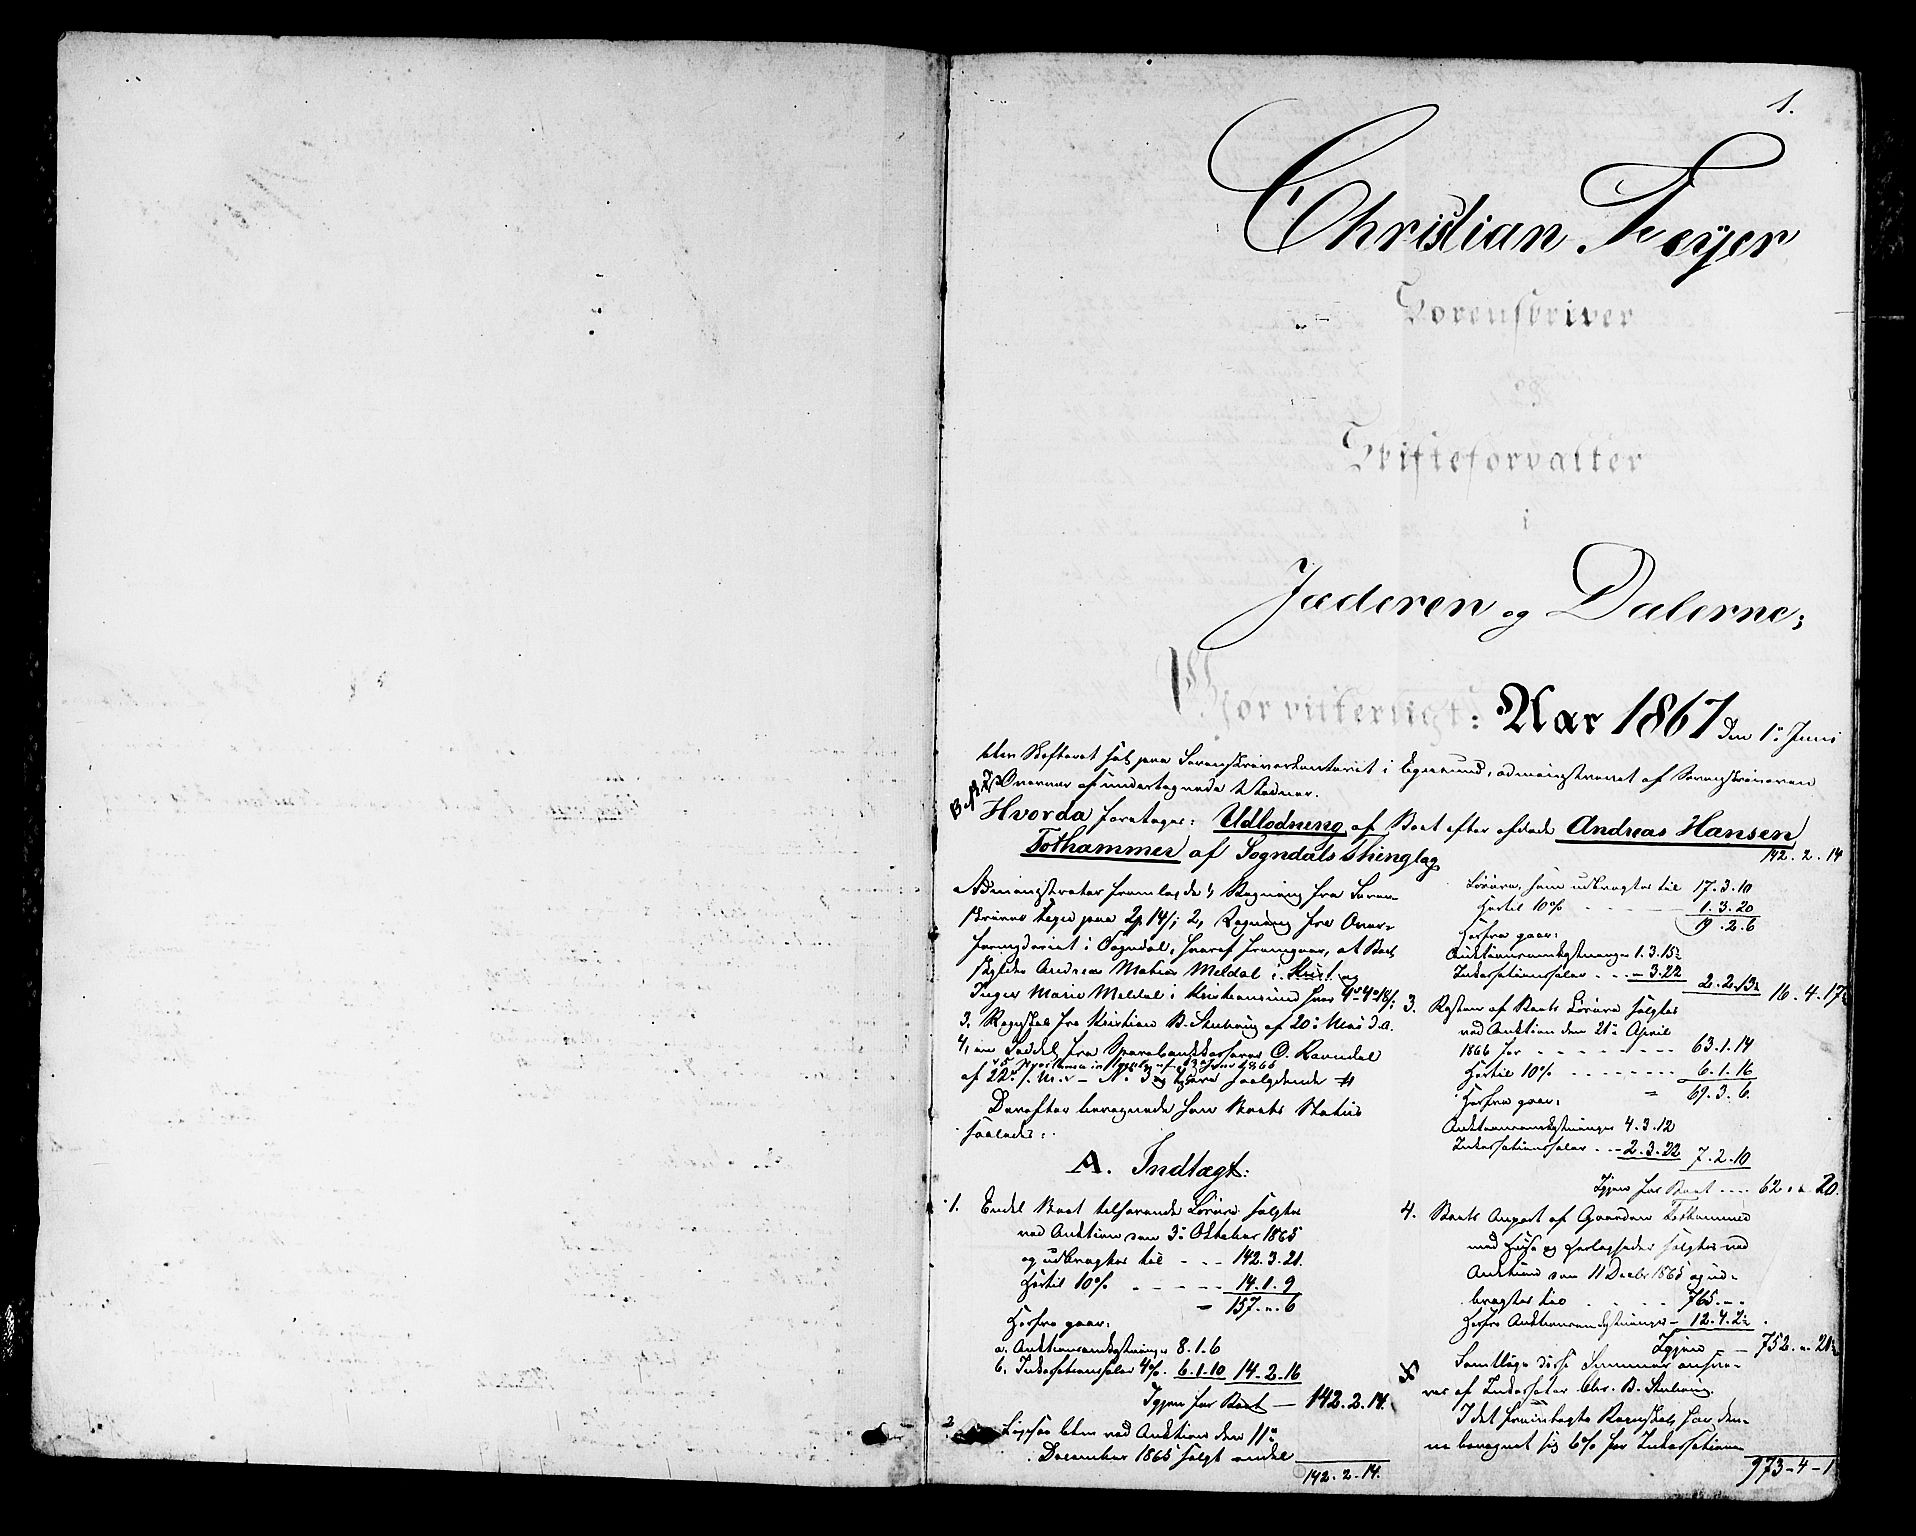 1.
Christian Feyer
Sorenskriver
og
Skifteforvalter
i
Jæderen og Dalerne;
Gjør vitterligt: Aar 1867 den 1ste Juni
blev Skifteret sat paa Sorenskriverkontoret i Egersund, administreret af Sorenskriveren
i Overvær af undertegnede Vidner.
Hvorda foretoges: Udlodning af Boet efter afdøde Andreas Hansen
Fothammer af Sogndals Thinglag
Administrator fremlagde 1, Regning fra Soren-
skriver Feyer paa 2 14/; 2, Regning fra Over-
formynderiet i Sogndal, hvoraf fremgaar, at Boet
skylder Andreas Mathias Meldal i Krist og
Inger Marie Meldal i Kristiansund hver
3, Regnskab fra Kristian B. Stenberg af 20de Mai d.A.
4, en Seddel fra Sparebankkasserer O. Ravndal
af 22de s.M. – No. 3 og 4 saalydende #
Derefter beregnede han Boets Status
saaledes:
A. Indtægt:
1. Endel Boet tilhørende Løsøre solgtes
ved Auktion den 3de Oktober 1865
og udbragtes til - - - 142.3.21.
Hertil 10% - - - - - 14.1.9
= 157.„.6
Herfra gaar:
a. Auktionsomkostninger 8.1.6
b. Inkassationssalær 4%. 6.1.10 14.2.16
Igjen for Boet — 142.2.14.
2. Ligesaa blev ved Auktion den 11te
December 1865 solgt endel
142.2.14.
142.2.14
Løsøre, som udbragtes til 17.3.10
Hertil 10% - - - - - 1.3.20
19.2.6
Herfra gaar:
Auktionsomkostninger 1.3.15½
Inkassationssalær - - - „.3.22 2.2.13½ 16.4.17½
3. Resten af Boets Løsøre solgtes
ved Auktion den 21de April
1866 for - - - - - - - 63.1.14
Hertil 10% - - - - - - - 6.1.16
= 69.3.6.
Herfra gaar:
Auktionsomkostninger 4.3.12
Inkassationssalær - - 2.3.22 7.2.10
Igjen for Boet - - - - 62.„.20.
4. Boets Anpart af Gaarden Fothammer
med Huse og Herligheder solgtes ved
Auktion den 11 Decbr 1865 og ud-
bragtes til - - - - - 765.„.„
Herfra Auktionsomkostninger – 12.4.2½
Igjen — 752.„.21½
Samtlige disse Summer ansva-
res af Inkassator Chr. B. Stenberg.
I det fremlagte Regnskab har den-
ne beregnet sig 6% for Inkassation
973-4-1